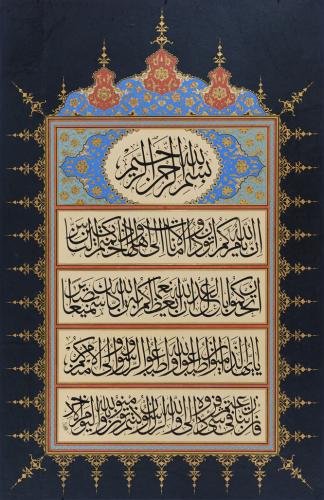 بسم الله الرحمن الرحيم
ان الله يأمركم ان تؤدوا الامانات الى اهلها واذا حكمتم بين الناس
ان تحكموا بالعدل ان الله نعما يعظكم به ان الله كان سميعا بصيرا
يا ايها الذين آمنوا اطيعوا الله واطيعوا الرسول واولى الامر منكم
فان تنازعتم في شيء فردوه الى الله والرسول ان كنتم تؤمنون بالله واليوم الآخر